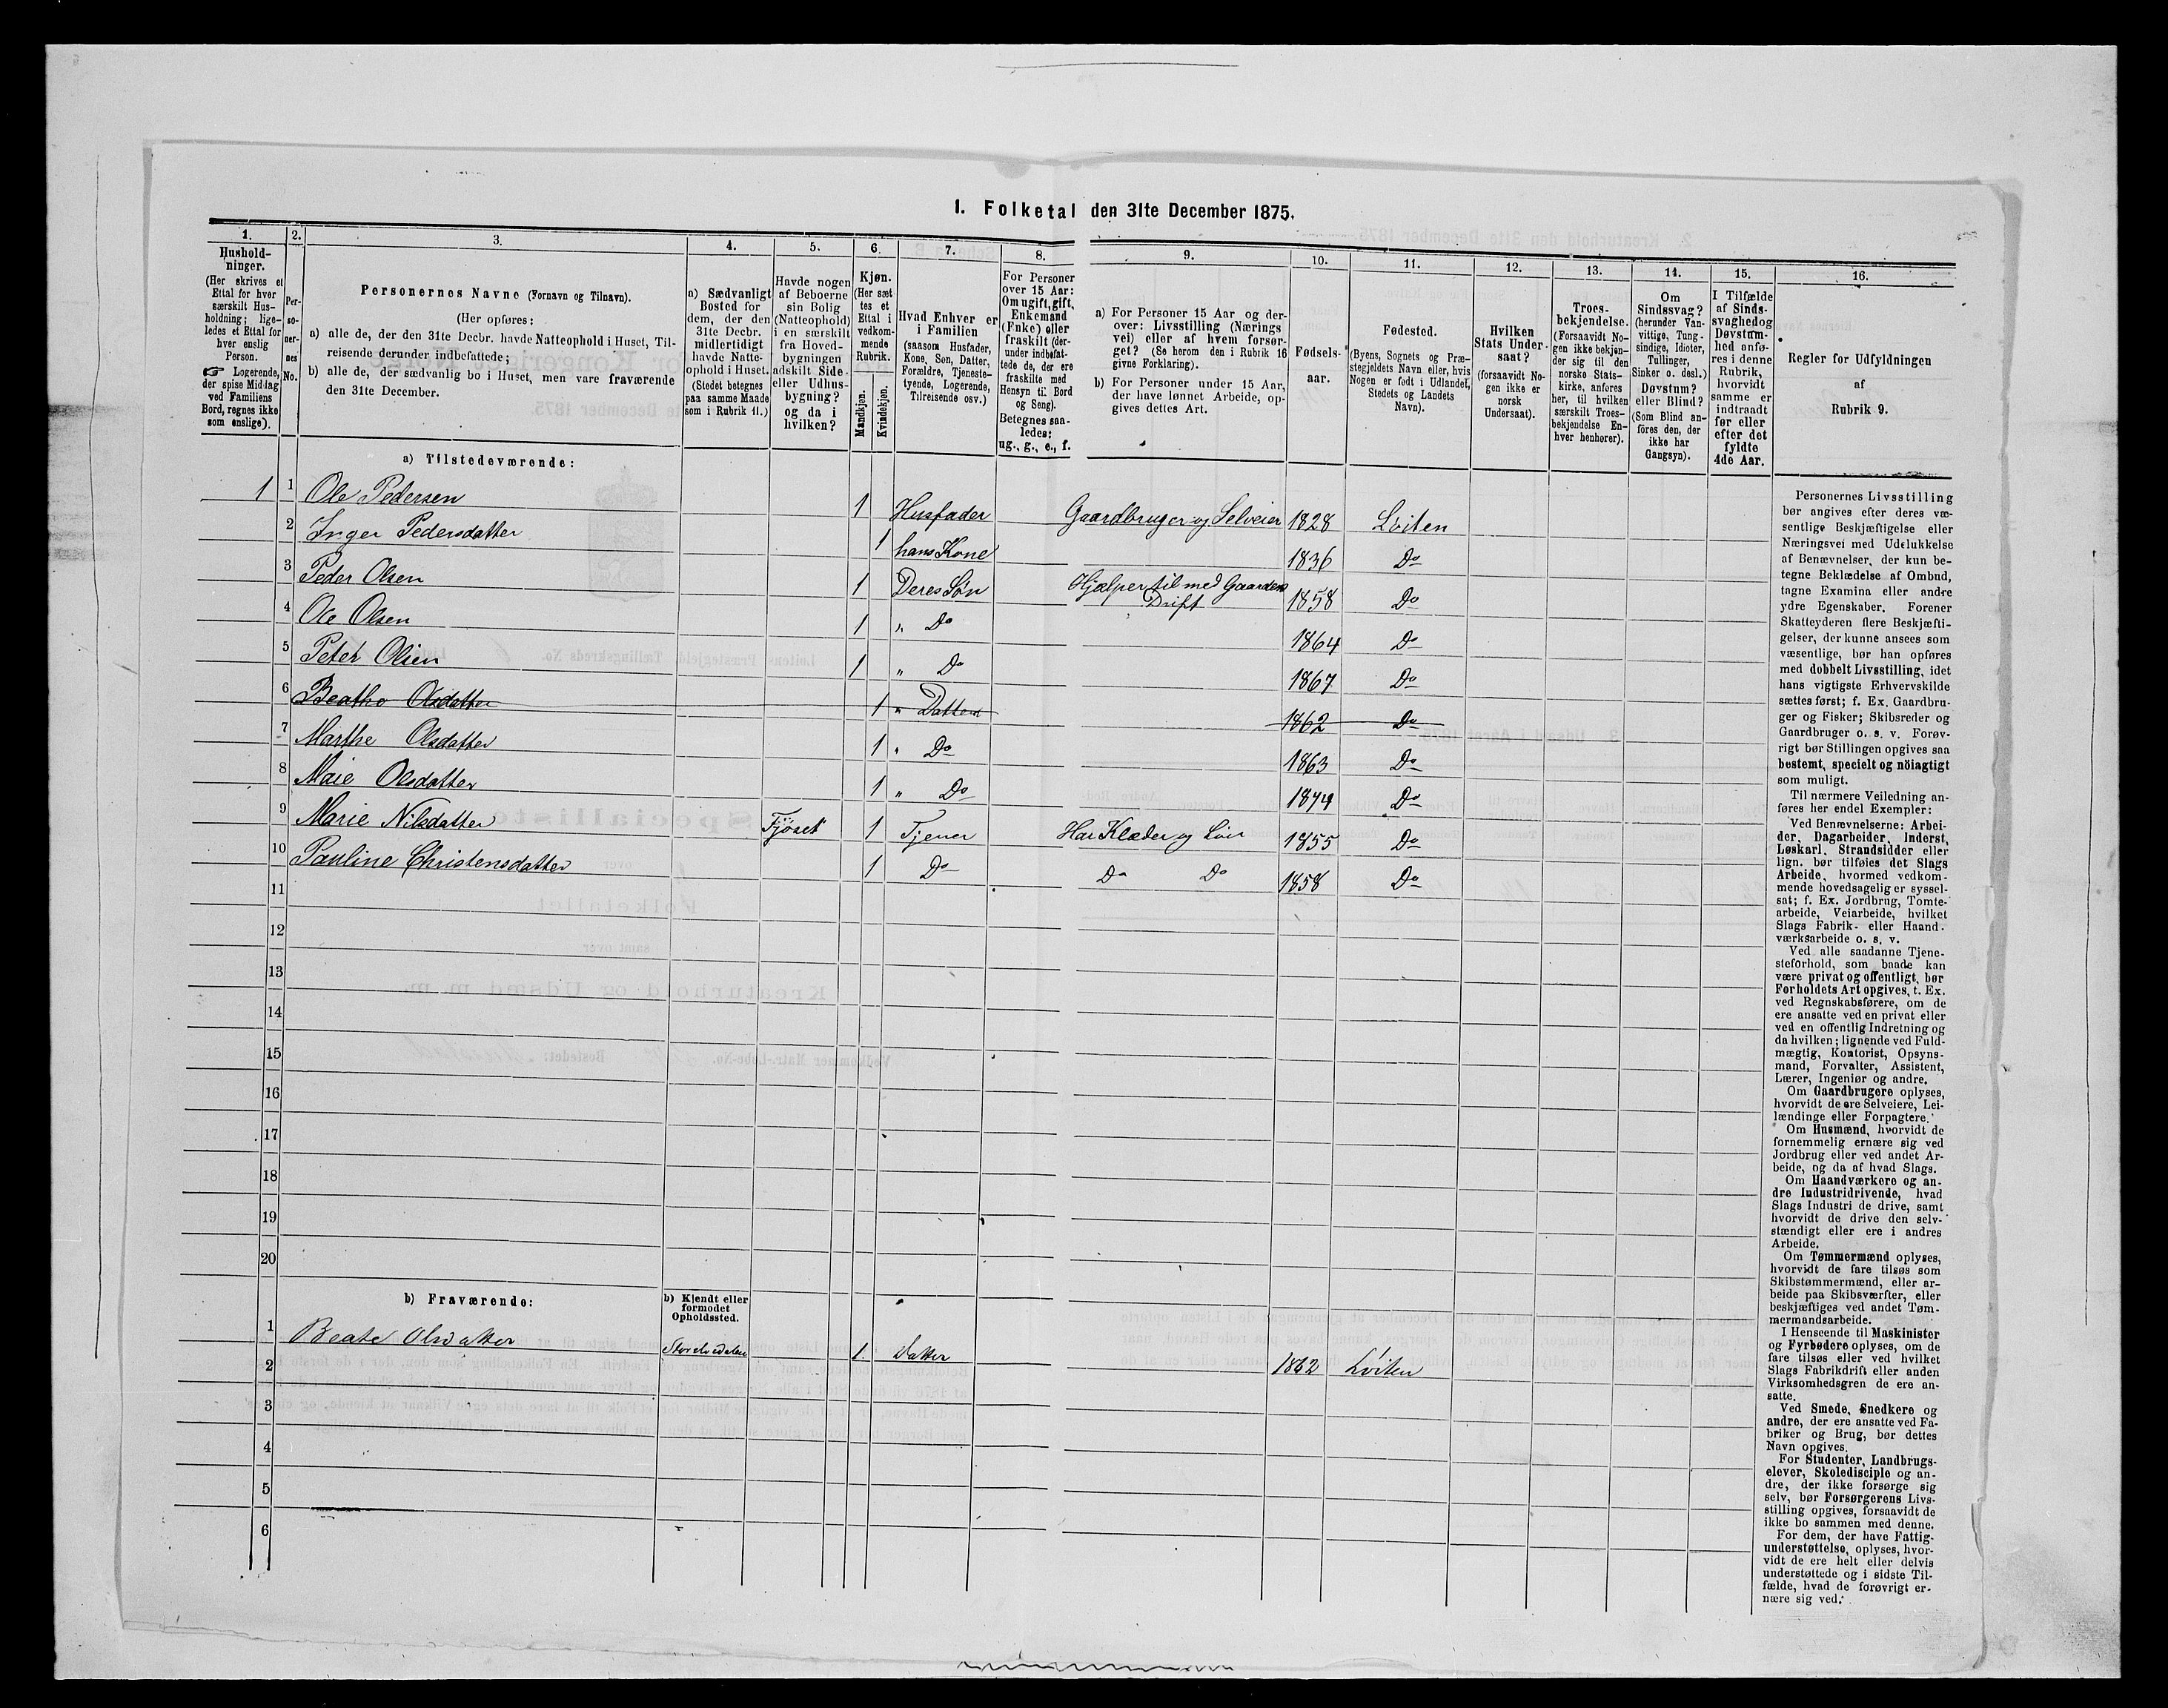 1. Folketal den 31te December 1875.
1. 2. 3. 4. 5. 6. 7. 8. 9. 10. 11. 12. 13. 14. 15. 16.
Hushold-
ninger.
(Her skrives et
Ettal for hver
særskilt Hus-
holdning; lige-
ledes et Ettal for
hver enslig
Person.
☞ Logerende,
der spise Middag
ved Familiens
Bord, regnes ikke
som enslige).
Per-
so-
ner-
nes
No.
Personernes Navne (Fornavn og Tilnavn).
(Her opføres:
a) alle de, der den 31te Decbr. havde Natteophold i Huset, Til-
reisende derunder indbefattede;
b) alle de, der sædvanlig bo i Huset, men vare fraværende
den 31te December.
a) Sædvanligt
Bosted for
dem, der den
31te Decbr.
midlertidigt
havde Natte-
ophold i Huset.
(Stedet betegnes
paa samme Maade
som i Rubrik 11.)
Havde nogen
af Beboerne
sin Bolig
(Natteophold)
i en særskilt
fra Hoved-
bygningen
adskilt Side-
eller Udhus-
bygning?
og da i
hvilken?
Kjøn.
(Her sæt
tes et
Ettal i
vedkom-
mende
Rubrik.
Mandkjøn.
Kvindekjøn.
Hvad Enhver er
i Familien
(saasom Husfader,
Kone, Søn, Datter,
Forældre, Tjeneste-
tyende, Logerende,
Tilreisende osv.)
For Personer
over 15 Aar:
Om ugift, gift,
Enkemand
(Enke) eller
fraskilt (der-
under indbefat-
tede de, der ere
fraskilte med
Hensyn til Bord
og Seng).
Betegnes saa-
ledes:
ug., g., e., f.
a) For Personer 15 Aar og der-
over: Livsstilling (Nærings
vei) eller af hvem forsør-
get? (Se herom den i Rubrik 16
givne Forklaring).
b) For Personer under 15 Aar,
der have lønnet Arbeide, op-
gives dettes Art.
Fødsels-
aar.
Fødested.
(Byens, Sognets og Præ-
stegjeldets Navn eller, hvis
Nogen er født i Udlandet,
Stedets og Landets
Navn).
Hvilken
Stats Under-
saat?
(forsaavidt No-
gen ikke er
norsk
Undersaat).
Troes-
bekjendelse.
(Forsaavidt No-
gen ikke bekjen-
der sig til den
norske Stats-
kirke, anføres
her, til hvilken
særskilt Troes-
bekjendelse En-
hver henhører).
Om
Sindssvag?
(herunder Van-
vittige, Tung-
sindige, Idioter,
Tullinger,
Sinker o. desl.)
Døvstum?
eller Blind?
(Som Blind an-
föres den, der
ikke har
Gangsyn).
I Tilfælde
af Sinds-
svaghed og
Døvstum-
hed anfø-
res i denne
Rubrik,
hvorvidt
samme er
indtraadt
før eller
efter det
fyldte
4de Aar.
Regler for Udfyldningen
af
Rubrik 9.
a) Tilstedeværende:
1 1 Ole Pedersen 1 Husfader Gaardbruger og Selveier 1828 Löiten
2 Inger Pedersdatter 1 hans Kone 1836 Do
3 Peder Olsen 1 Deres Søn Hjælper til med Gaardens
Drift 1858 Do
4 Ole Olsen 1 " Do 1864 Do
5 Peter Olsen 1 " Do 1867 Do
6 Beathe Olsdatter 1 " Datter 1862 Do
7 Marthe Olsdatter 1 " Do 1863 Do
8 Maie Olsdatter 1 " Do 1874 Do
9 Marie Nilsdatter Fjöset 1 Tjener Har Klæder og Løn 1855 Do
10 Pauline Christensdatter 1 Do Do Do 1858 Do
11
12
13
14
15
16
17
18
19
20
b) Fraværende:
b) Kjendt eller
formodet
Opholdssted.
1 Beate Olsdatter Storelvedalen 1. Datter 1862 Löiten
2
3
4
5
6
Personernes Livsstilling
bør angives efter deres væ-
sentlige Beskjæftigelse eller
Næringsvei med Udelukkelse
af Benævnelser, der kun be-
tegne Beklædelse af Ombud,
tagne Examina eller andre
ydre Egenskaber. Forener
Skatteyderen flere Beskjæfti-
gelser, der kunne ansees som
væsentlige, bør han opføres
med dobbelt Livsstilling, idet
hans vigtigste Erhvervskilde
sættes først; f. Ex. Gaardbru-
ger og Fisker; Skibsreder og
Gaardbruger o. s. v. Forøv-
rigt bør Stillingen opgives saa
bestemt, specielt og nöiagtigt
som muligt.
Til nærmere Veiledning an-
føres her endel Exempler:
Ved Benævnelserne: Arbei-
der, Dagarbeider, Inderst,
Løskarl, Strandsidder eller
lign. bør tilføies det Slags
Arbeide, hvormed vedkom-
mende hovedsagelig er syssel-
sat; f. Ex. Jordbrug, Tomte-
arbeide, Veiarbeide, hvilket
Slags Fabrik- eller Haand-
værksarbeide o. s. v.
Ved alle saadanne Tjene-
steforhold, som baade kan
være privat og offentligt, bør
Forholdets Art opgives, t. Ex.
ved Regnskabsførere, om de
ere ansatte ved en privat eller
ved en offentlig Indretning og
da hvilken; lignende ved Fuld-
mægtig, Kontorist, Opsyns-
mand, Forvalter, Assistent,
Lærer, Ingeniør og andre.
Om Gaardbrugere oplyses,
hvorvidt de ere Selveiere, Lei-
lændinge eller Forpagtere.
Om Husmænd, hvorvidt de
fornemmelig ernære sig ved
Jordbrug eller ved andet Ar-
beide, og da af hvad Slags.
Om Haandværkere og an-
dre Industridrivende, hvad
Slags Industri de drive, samt
hvorvidt de drive den selv-
stændigt eller ere i andres
Arbeide.
Om Tømmermænd oplyses,
hvorvidt de fare tilsøs som
Skibstømmermænd, eller ar-
beide paa Skibsværfter, eller
beskjæftiges ved andet Tøm-
mermandsarbeide.
I Henseende til Maskinister
og Fyrbødere oplyses, om de
fare tilsøs eller ved hvilket
Slags Fabrikdrift eller anden
Virksomhedsgren de ere an-
satte.
Ved Smede, Snedkere og
andre, der ere ansatte ved Fa-
briker og Brug, bør dettes
Navn opgives.
For Studenter, Landbrugs-
elever, Skoledisciple og an-
dre, der ikke forsørge sig
selv, bør Forsørgerens Livs-
stilling opgives, forsaavidt de
ikke bo sammen med denne.
For dem, der have Fattig-
understøttelse, oplyses, hvor-
vidt de ere helt eller delvis
understøttede og i sidste Til-
fælde, hvad de forøvrigt er-
nære sig ved.